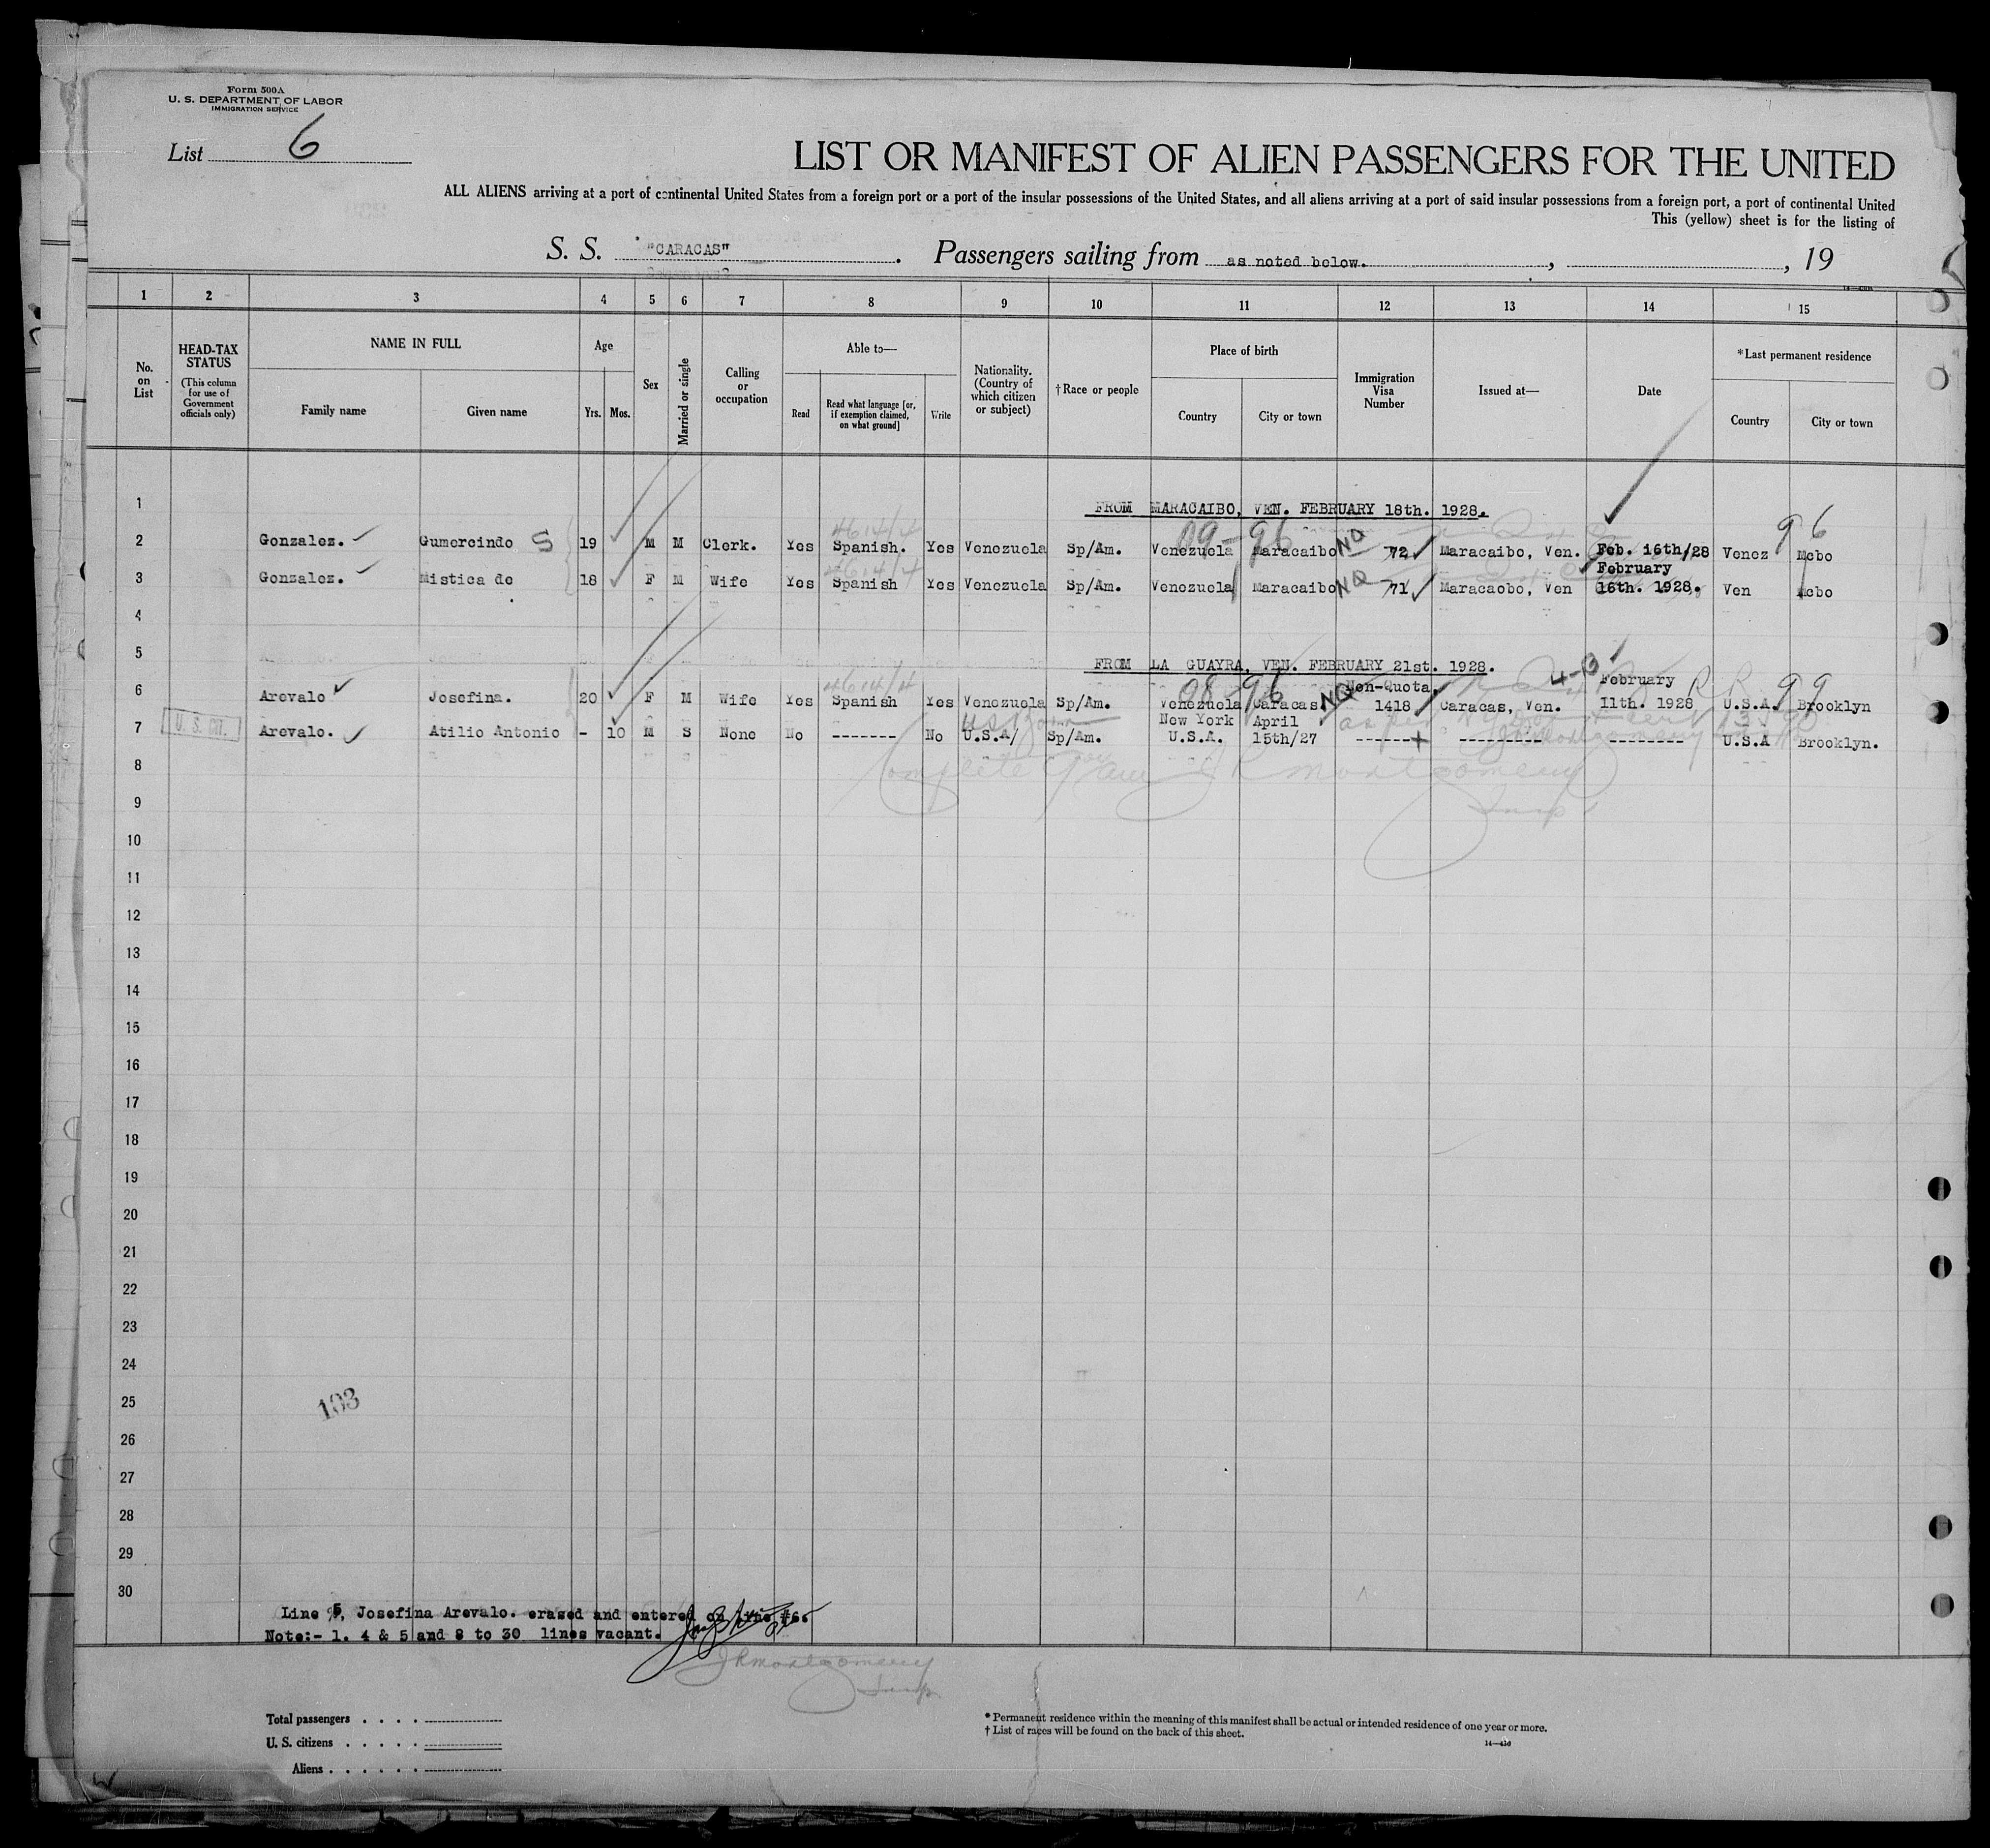 Form 500A
U. S. DEPARTMENT OF LABOR
IMMIGRATION SERVICE
List 6
LIST OR MANIFEST OF ALIEN PASSENGERS FOR THE UNITED
ALL ALIENS arriving at a port of continental United States from a foreign port or a port of the insular possessions of the United States, and all aliens arriving at a port of said insular possessions from a foreign port, a port of continental United
This (yellow) sheet is for the listing of
S. S. "CARACAS". Passengers sailing from as noted below. , , 19
1 2 3 4 5 6 7 8 9 10 11 12 13 14 15
No. on List
HEAD-TAX STATUS (This column for use of Government officials only)
NAME IN FULL
Family name Given name
Age
Yrs. Mos.
Sex
Married or single
Calling or occupation
Able to—
Read Read what language [or, if exemption claimed, on what ground] Write
Nationality. (Country of which citizen or subject)
†Race or people
Place of birth
Country City or town
Immigration Visa Number
Issued at—
Date
*Last permanent residence
Country City or town
1 FROM MARACAIBO, VEN. FEBRUARY 18th. 1928.
09-96 96
2 Gonzalez. Gumercindo 19 M M Clerk. Yes Spanish. Yes Venezuela Sp/Am. Venezuela Maracaibo NQ 72 Maracaibo, Ven. Feb. 16th/28 Venez Mcbo
3 Gonzalez. Mistica de 18 F M Wife Yes Spanish Yes Venezuela Sp/Am. Venezuela Maracaibo NQ 71 Maracaobo, Ven February 16th. 1928. Ven Mcbo
4
5 FROM LA GUAYRA, VEN. FEBRUARY 21st. 1928.
08-96 99
6 Arevalo Josefina. 20 F M Wife Yes Spanish Yes Venezuela Sp/Am. Venezuela Caracas NQ Non-Quota, 1418 Caracas, Ven. February 11th. 1928 U.S.A. Brooklyn
7 U. S. CIT. Arevalo. Atilio Antonio - 10 M S None No ------- No U.S.A/ Sp/Am. New York U.S.A. April 15th/27 ------ --------- -------- U.S.A Brooklyn.
8 Complete J R Montgomery
9 Insp
10
11
12
13
14
15
16
17
18
19
20
21
22
23
24
25 103
26
27
28
29
30
Line 5, Josefina Arevalo. erased and entered on line #6.
Note:- 1. 4 & 5 and 8 to 30 lines vacant.
J R Montgomery
Insp.
Total passengers . . . .
U. S. citizens . . . . .
Aliens . . . . . .
* Permanent residence within the meaning of this manifest shall be actual or intended residence of one year or more.
† List of races will be found on the back of this sheet.